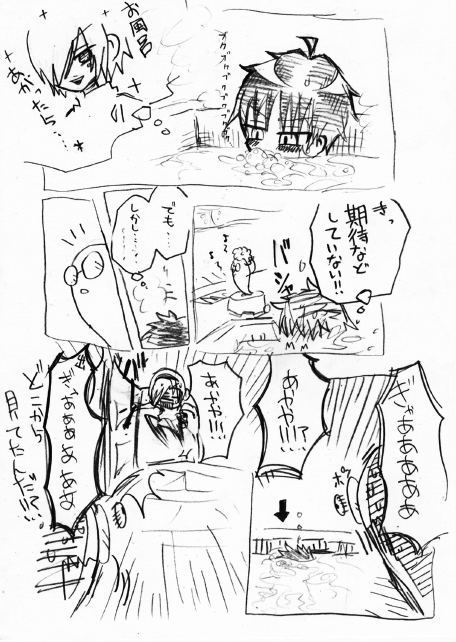 お風呂
あがったら…
きっ
期待など
していない!!
バシャ
でも…
しかし……
ぎゃああああああ
あかや!?
!!!
あかや!!!
ぎゃあああああ
どこから
見てたんだ